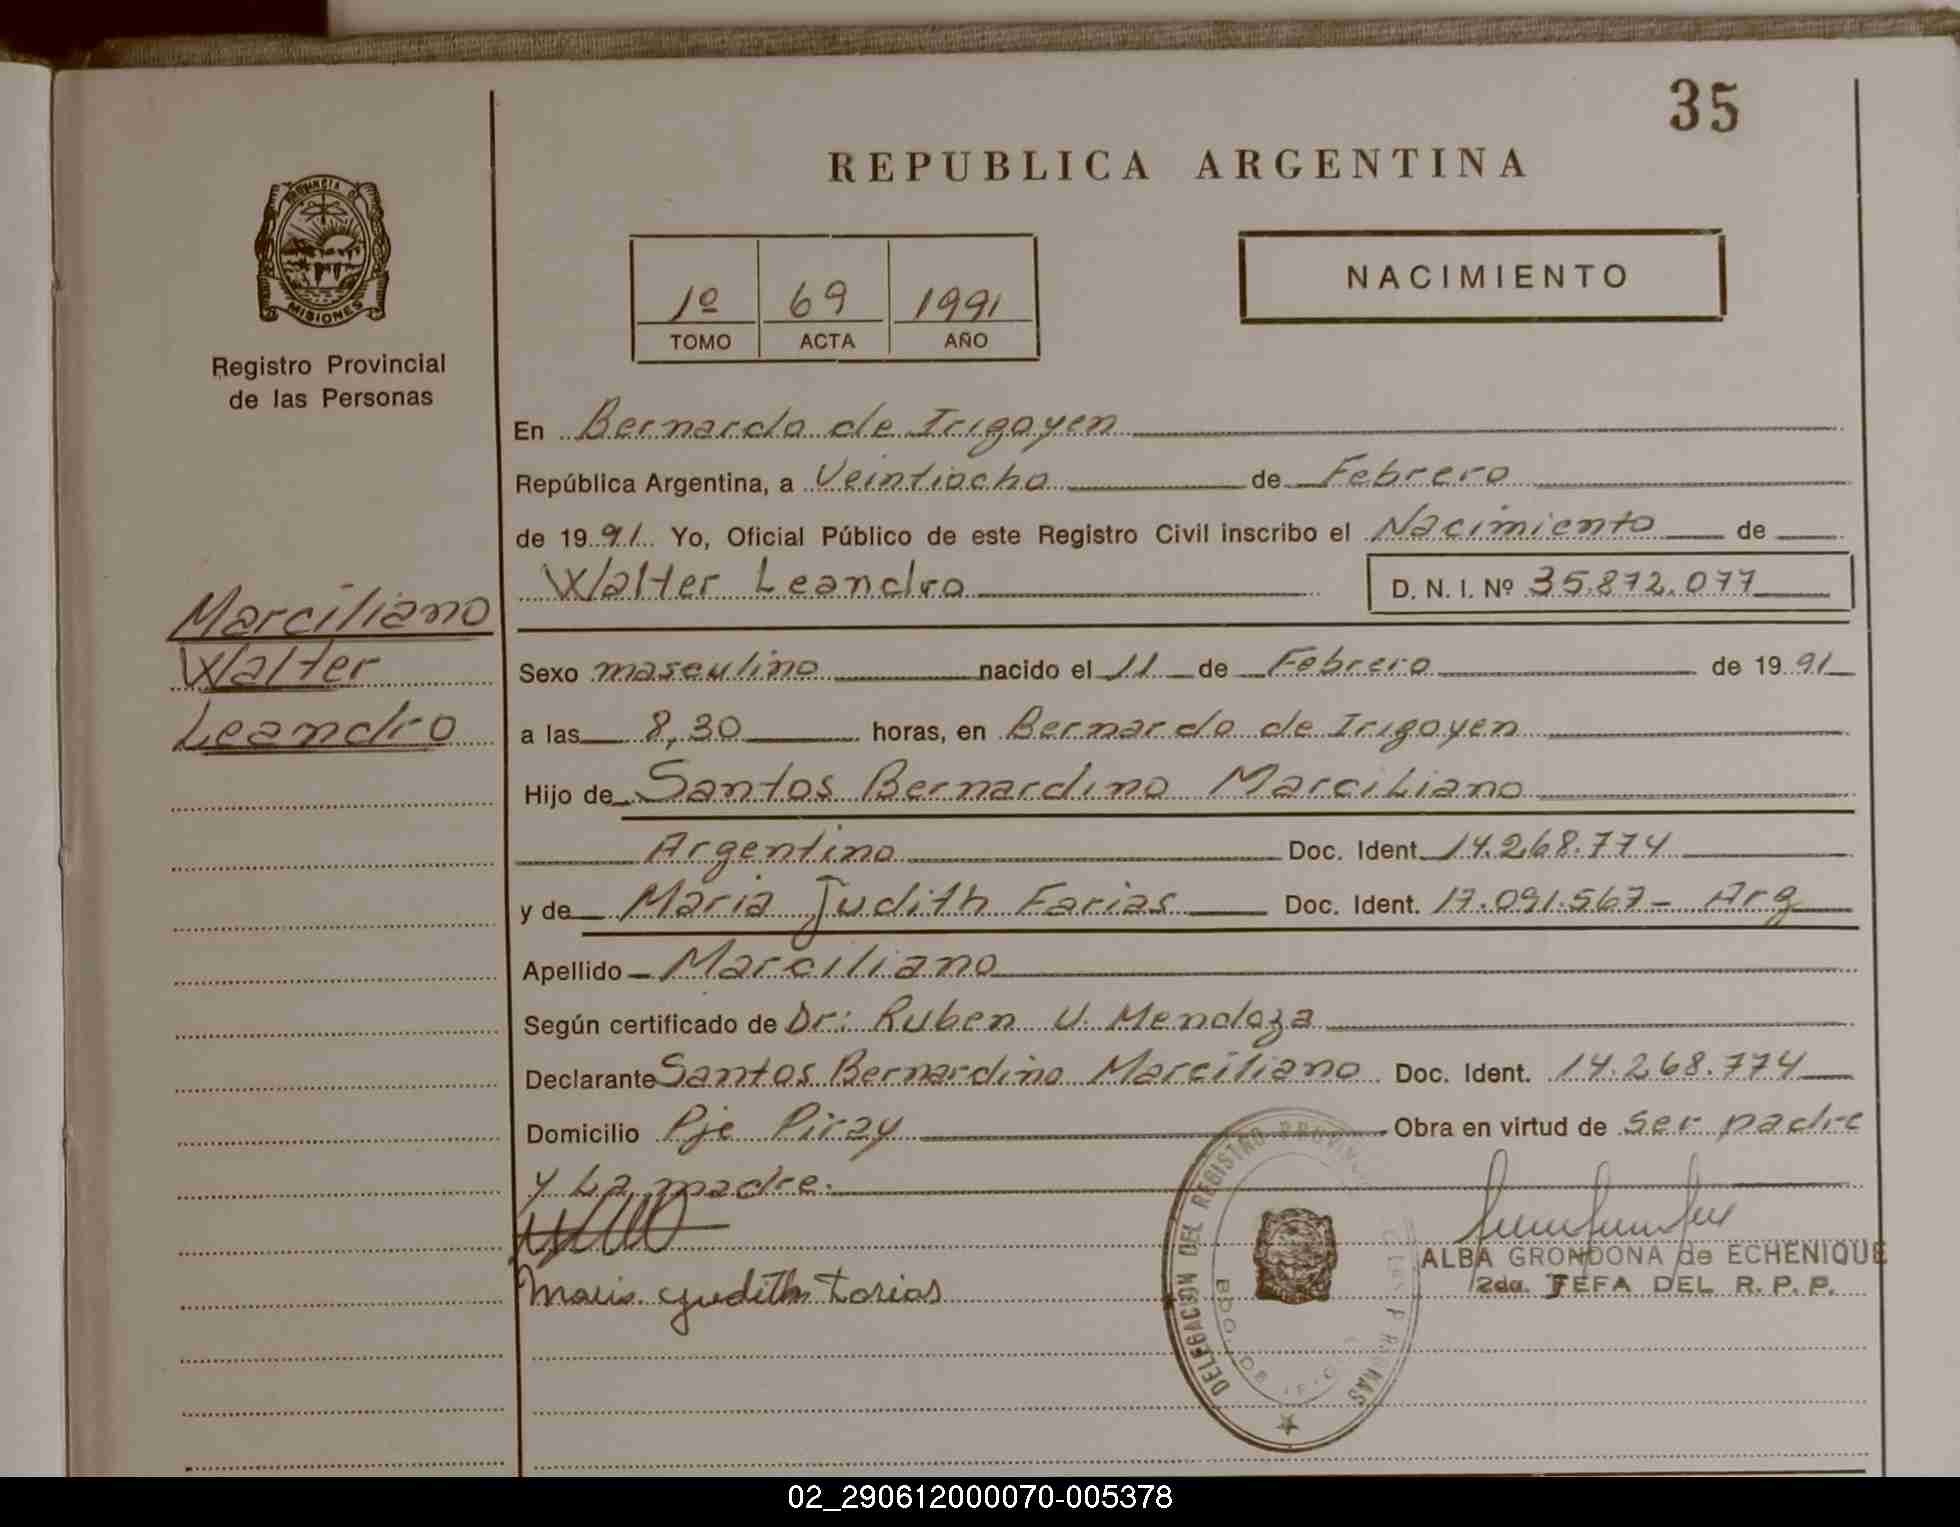 35
REPUBLICA ARGENTINA
PROVINCIA D
MISIONES
Registro Provincial
de las Personas
1º 69 1991
TOMO ACTA AÑO
NACIMIENTO
En Bernardo de Irigoyen
República Argentina, a Veintiocho de Febrero
de 1991 Yo, Oficial Público de este Registro Civil inscribo el Nacimiento de
Walter Leandro D. N. I. Nº 35.872.077
Marciliano
Walter
Leandro
Sexo masculino nacido el 11 de Febrero de 1991
a las 8,30 horas, en Bernardo de Irigoyen
Hijo de Santos Bernardino Marciliano
Argentino Doc. Ident. 14.268.774
y de Maria Judith Farias Doc. Ident. 17.091.567- Arg
Apellido Marciliano
Según certificado de Dr: Ruben U. Mendoza
Declarante Santos Bernardino Marciliano Doc. Ident. 14.268.774
Domicilio Pje Piray Obra en virtud de ser padre
y La madre.
ALBA GRONDONA de ECHENIQUE
2da. JEFA DEL R. P. P.
Maria Judith Farias
DELEGACION DEL REGISTRO PROVINC
02_290612000070-005378